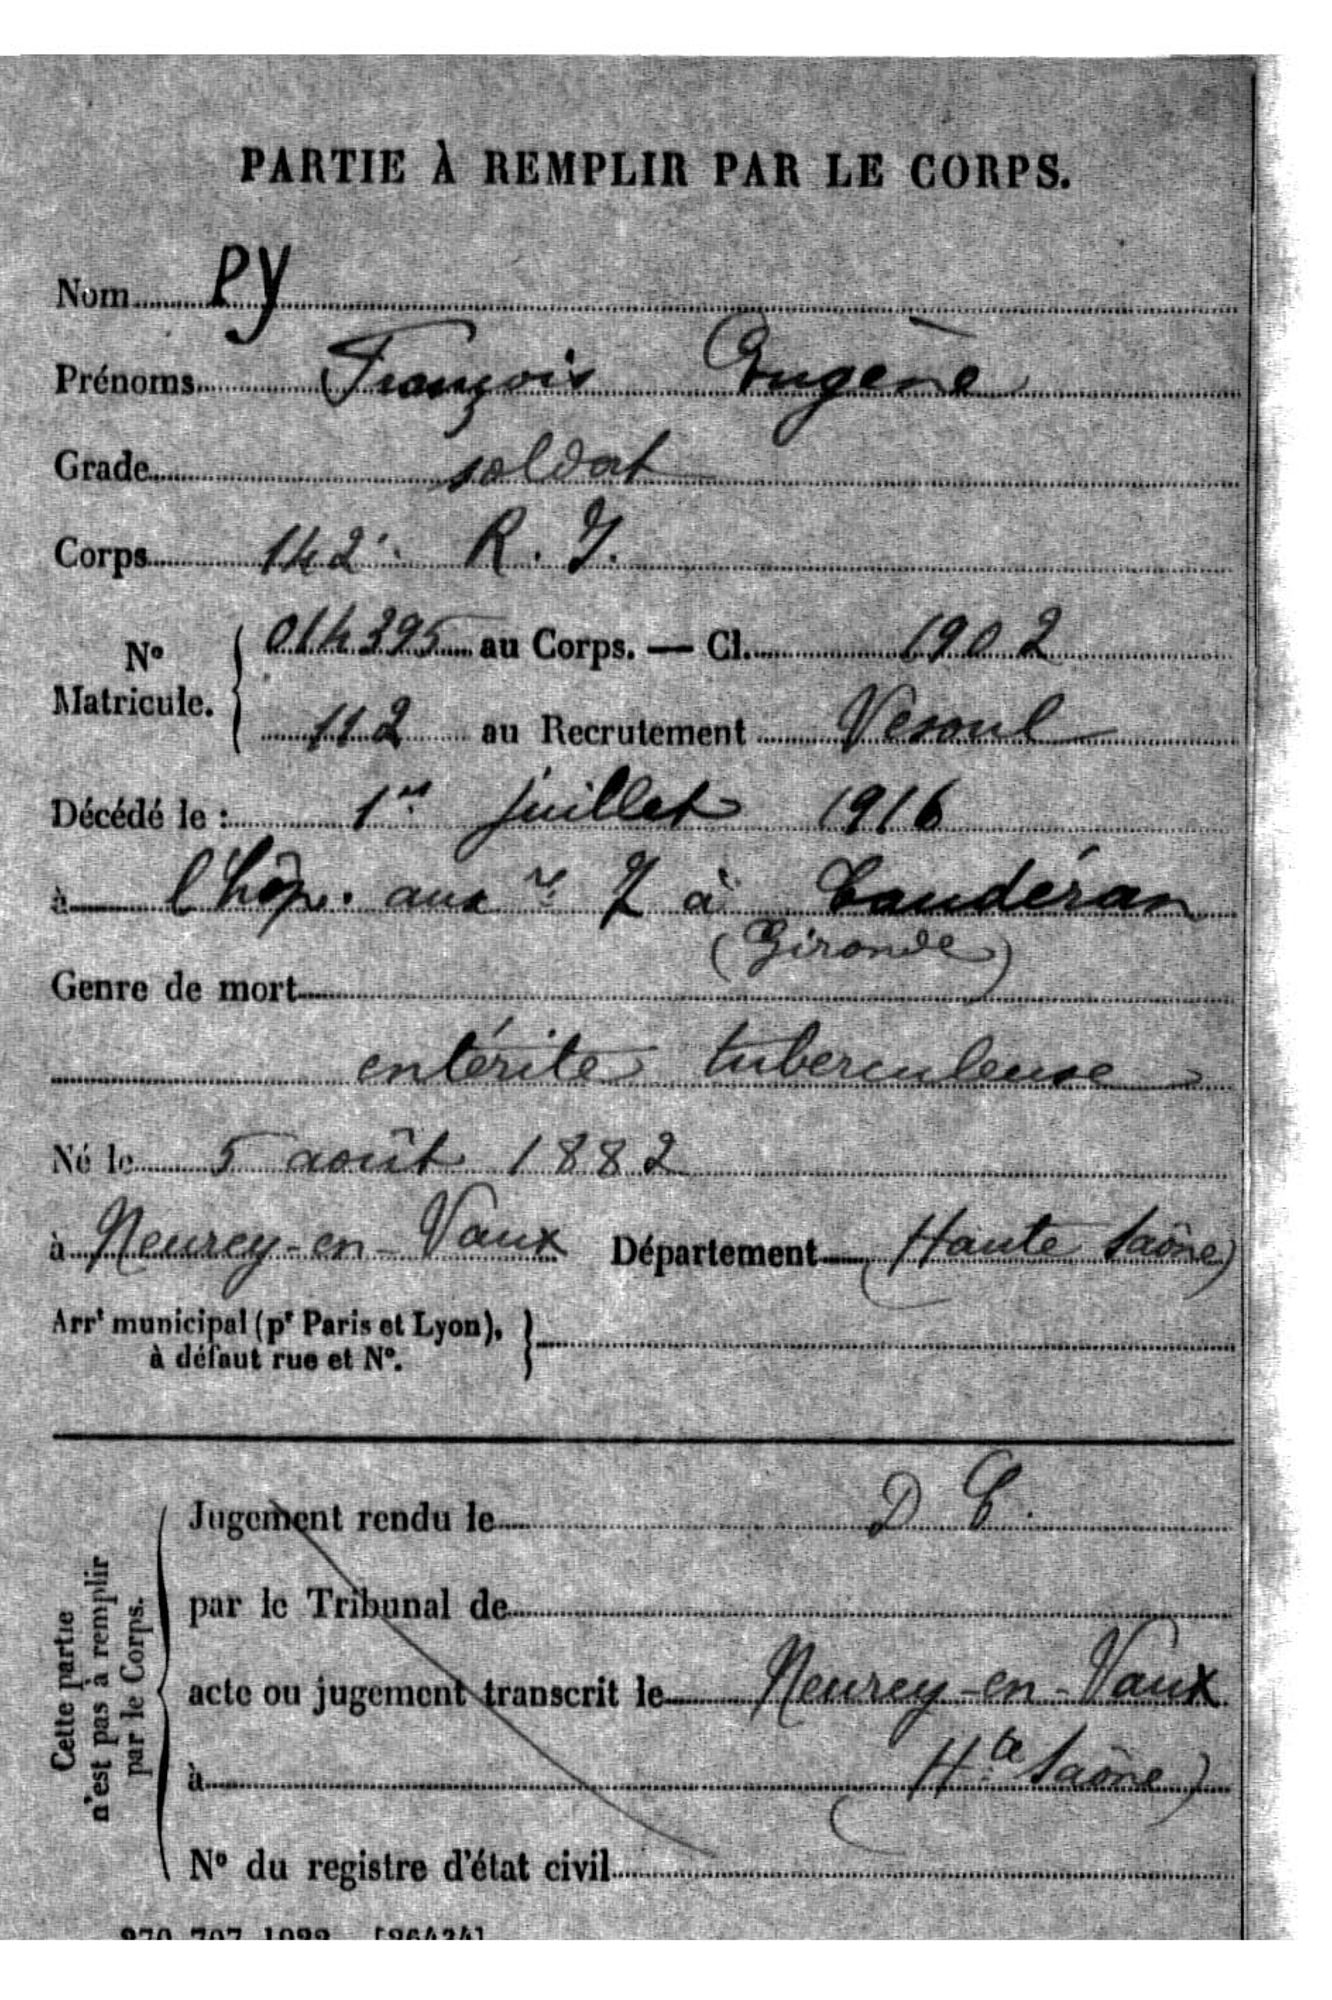 PARTIE À REMPLIR PAR LE CORPS.
Nom PY
Prénoms François Eugène
Grade soldat
Corps 142e. R. I.
No Matricule. { 014395 au Corps. — Cl. 1902
112 au Recrutement Vesoul
Décédé le : 1er juillet 1916
à l'hôp. auxre 7 à Caudéran
(Gironde)
Genre de mort
entérite tuberculeuse
Né le 5 août 1882
à Neurey-en-Vaux Département (Haute Saône)
Arrt municipal (pr Paris et Lyon), }
à défaut rue et No.
Cette partie
n'est pas à remplir
par le Corps.
Jugement rendu le D C.
par le Tribunal de
acte ou jugement transcrit le Neurey-en-Vaux
à (Hte Saône)
No du registre d'état civil